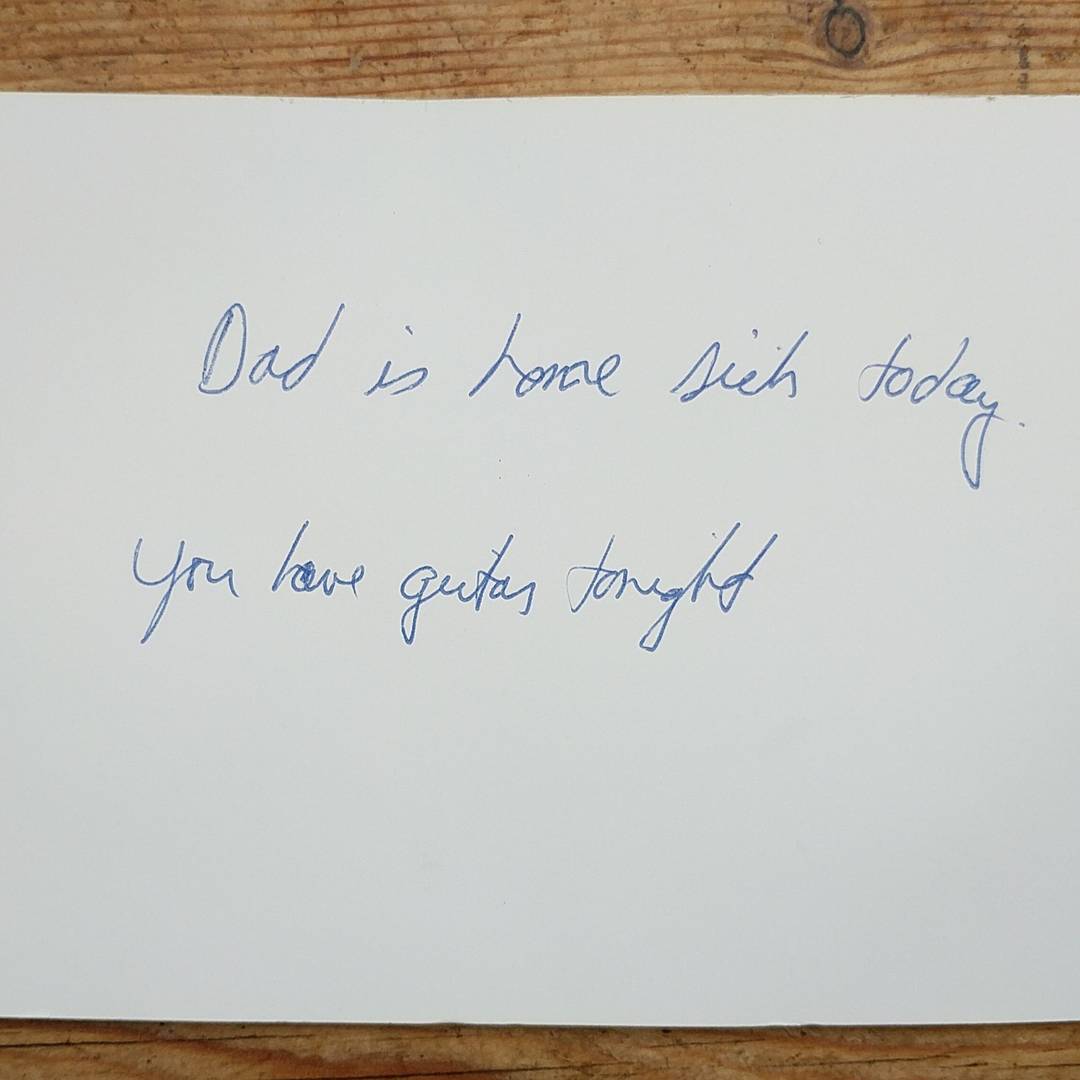 Dad is home sick today.
You have guitar tonight